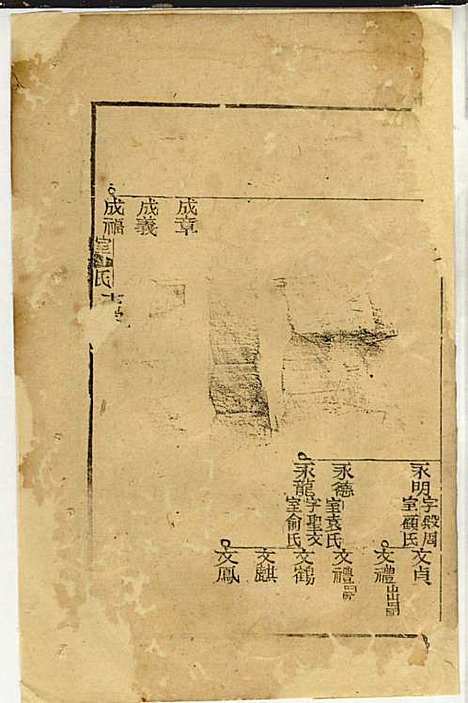 成章
成義
成福
室
氏
永明字殿周
室顧氏
永德室袁氏
永龍字聖文
室俞氏
文貞
文禮出嗣
文禮嗣
文鶴
文麒
文鳳